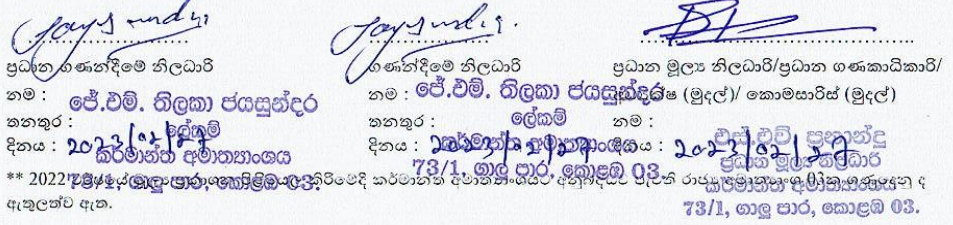 ප්‍රධාන ගණන්දීමේ නිලධාරි
නම : ජේ.එම්. තිලකා ජයසුන්දර
තනතුර : ලේකම්
දිනය : 2023/02/27
කර්මාන්ත අමාත්‍යාංශය
73/1, ගාලු පාර, කොළඹ 03.
ගණන්දීමේ නිලධාරි
නම : ජේ.එම්. තිලකා ජයසුන්දර
තනතුර : ලේකම්
දිනය : 2023/02/27
කර්මාන්ත අමාත්‍යාංශය
73/1, ගාලු පාර, කොළඹ 03
ප්‍රධාන මූල්‍ය නිලධාරි/ප්‍රධාන ගණකාධිකාරි/
(මුදල්)/ කොමසාරිස් (මුදල්)
නම :
දිනය : 2023/02/27
එස්.එච්. ප්‍රනාන්දු
ප්‍රධාන මූල්‍ය නිලධාරි
කර්මාන්ත අමාත්‍යාංශය
73/1, ගාලු පාර, කොළඹ 03.
** 2022 කිරීමේදී කර්මාන්ත අමාත්‍යාංශයට පැවති රාජ්‍ය අමාත්‍යාංශ 03ක ද
ඇතුලත්ව ඇත.